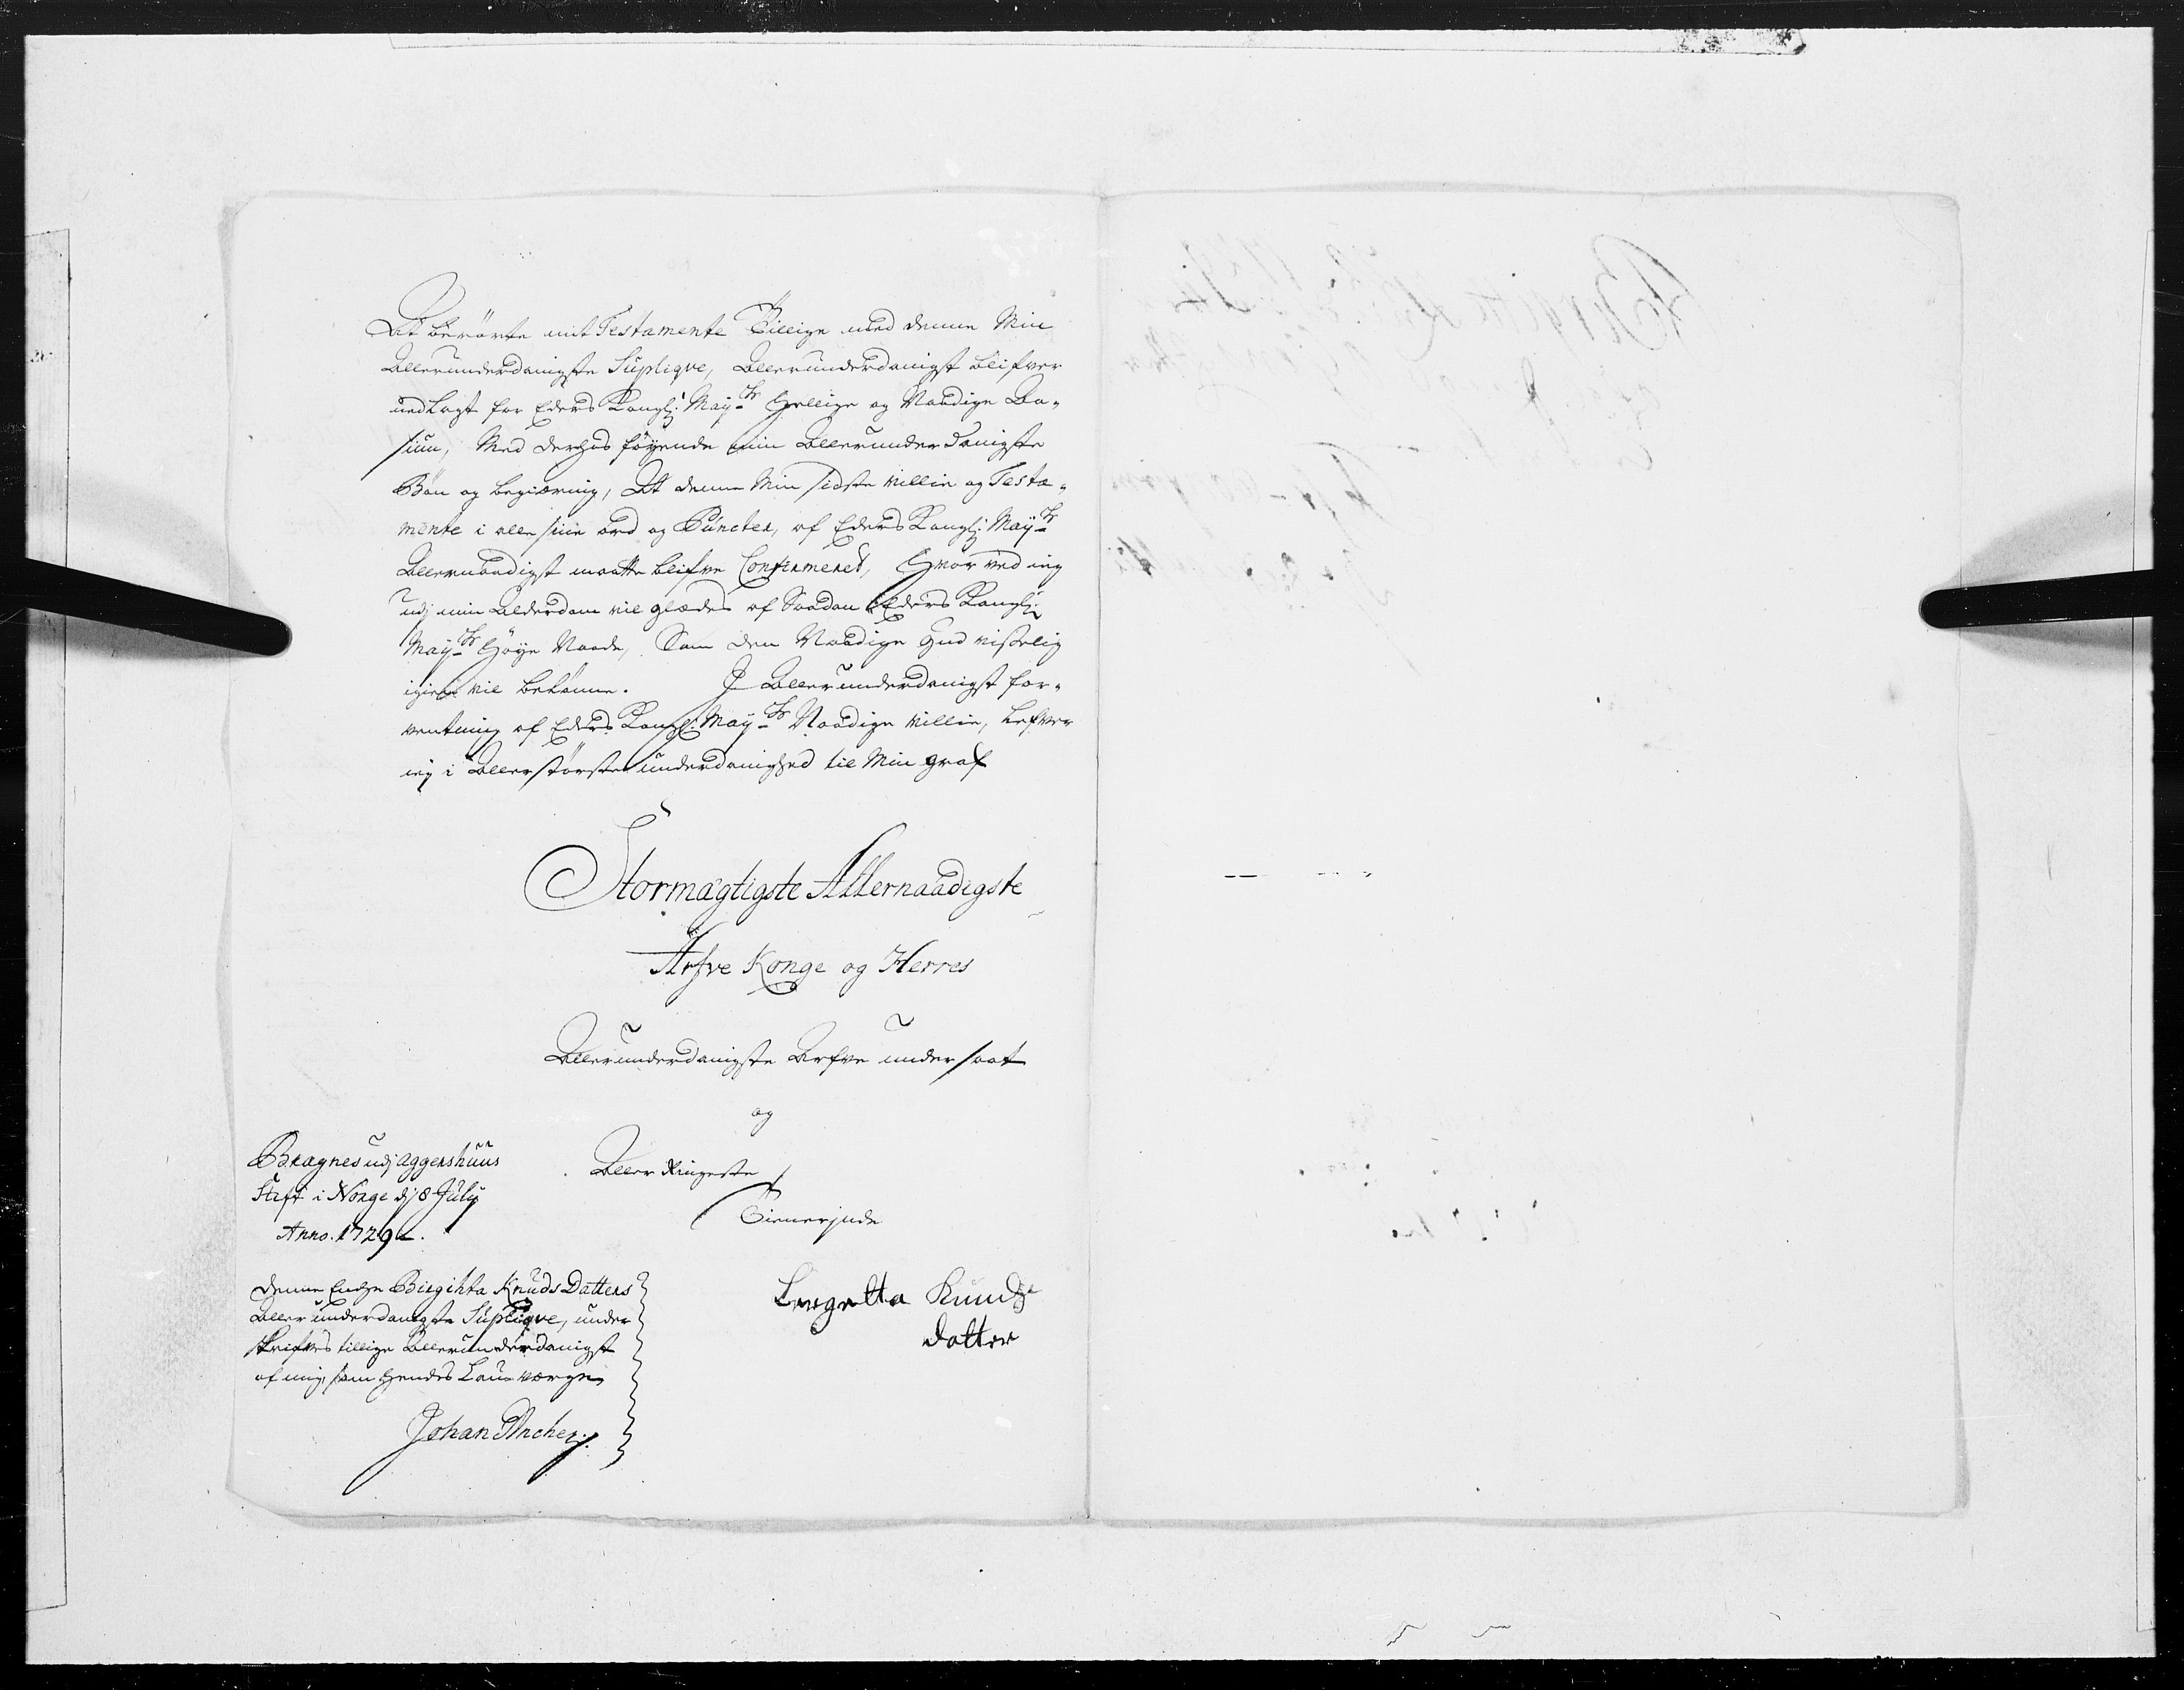 At berörte mit Testamente Tillige med denne Min
Allerunderdanigste Suplique, Allerunderdanigst blifver
nedlagt for Eders Kongl: May:ts Hellige og Naadige Da„
sium, Med derhos föyende min Allerunderdanigste
Bön og begiæring, At denne Min sidste villie og Testa„
mente i alle sine ord og Puncter, af Eders Kongl: May:ts
Allernaadigst maatte blifve Confirmeret, Hvor ved ieg
udj min Alderdom vil glædes af Saadan Eders Kongl:
May:ts Höye Naade, Som den Naadige Gud visselig
igien vil belönne. I Allerunderdanigst for„
ventning af Eders Kongl: May:ts Naadige villie, lefver
ieg i Allerstörste underdanighed til Min graf
Stormægtigste Allernaadigste
Arfve Konge og Herres
Allerunderdanigste Arfve undersaat
og
Bragnes udj Aggershuus
Stift i Norge dj 8 July
Anno. 1729.
Aller Ringeste
Tienerjnde
Denne Enche Birgihta Knuds Datters
Allerunderdanigste Suplique, under
skrifves tillige Allerunderdanigst
af mig, som hendes Lau-værge,
Johan Ancher.
Bergetta Knuds
Datter